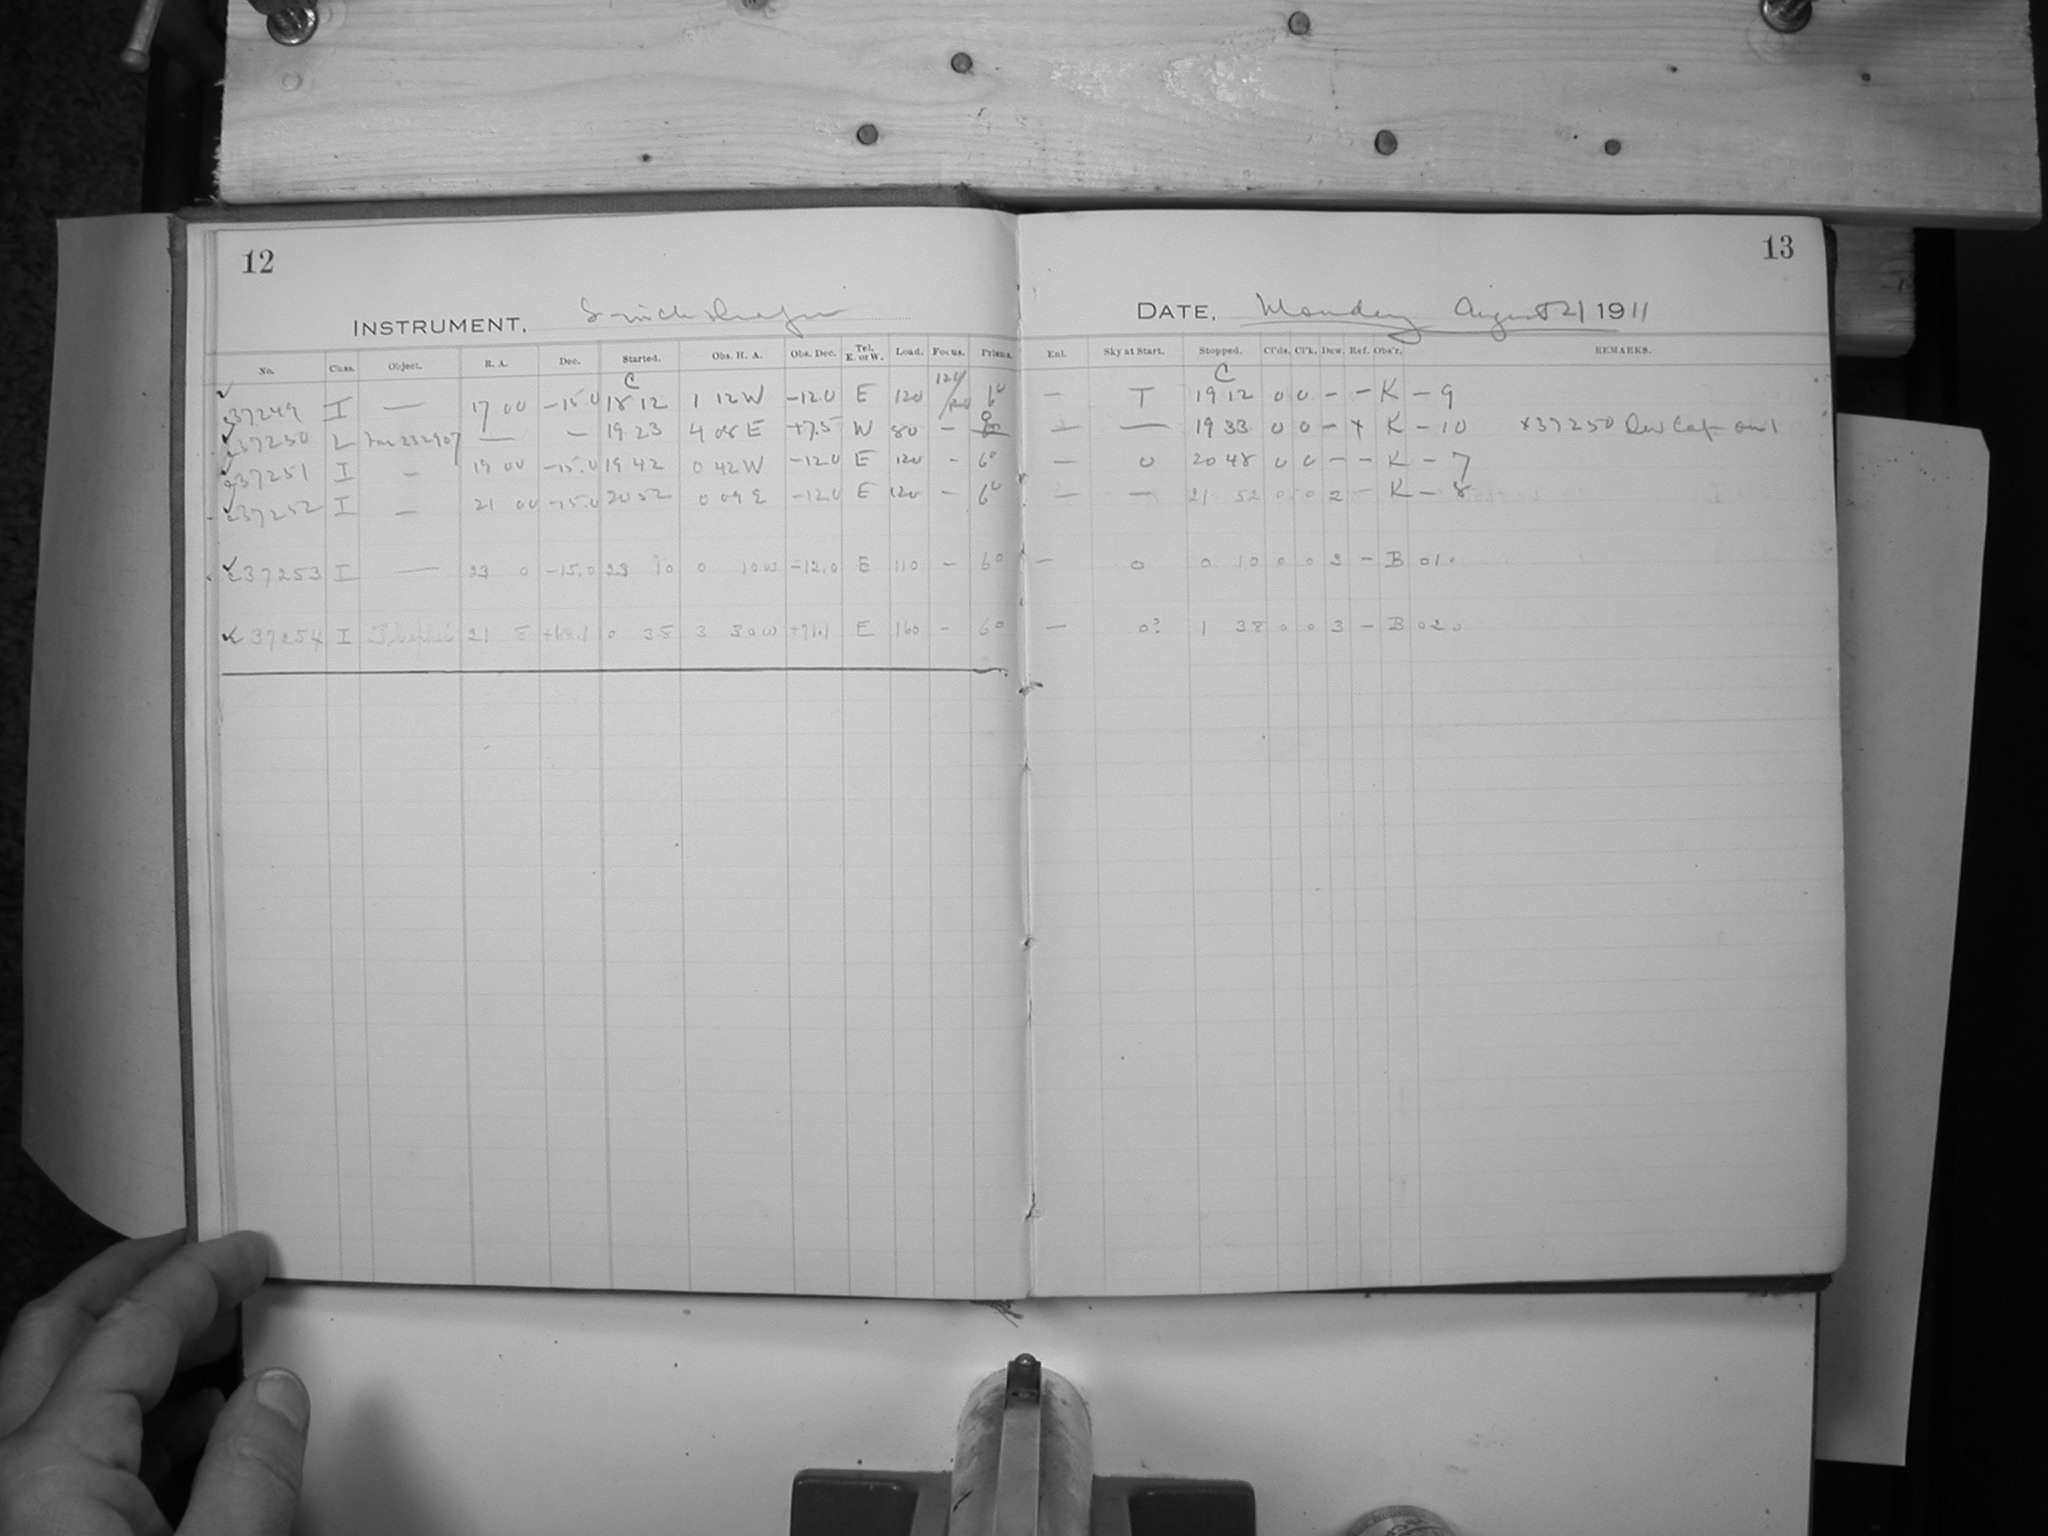 12
INSTRUMENT, 8-inch Draper
No. Class. Object. R. A. Dec. Started. Obs. H. A. Obs. Dec. Tel. E. or W. Load. Focus. Prisms.
C
37249 I — 17 00 -15.0 18 12 1 12 W -12.0 E 120 6°
37250 L 232907 — — 19 23 4 08 E +7.5 W 80 -
37251 I - 19 00 -15.0 19 42 0 42 W -12.0 E 120 - 6°
37252 I — 21 00 -15.0 20 52 0 09 E -12.0 E 120 - 6°
37253 I — 23 0 -15.0 23 10 0 10 W -12.0 E 110 - 6°
37254 I 21 8 0 38 3 30 W +71.1 E 160 - 6°
13
DATE, Monday August 21 1911
Enl. Sky at Start. Stopped. Cl'ds. Cl'k. Dew. Ref. Obs'r. REMARKS.
C
— T 19 12 0 0 - - K - 9
— — 19 33 0 0 - x K - 10 x 37250 Dew Cap on
— 0 20 48 0 0 - - K - 7
— — 21 52 0 0 2 - K - 8
— 0 0 10 0 0 3 - B 010
— 0? 1 38 0 0 3 - B 020